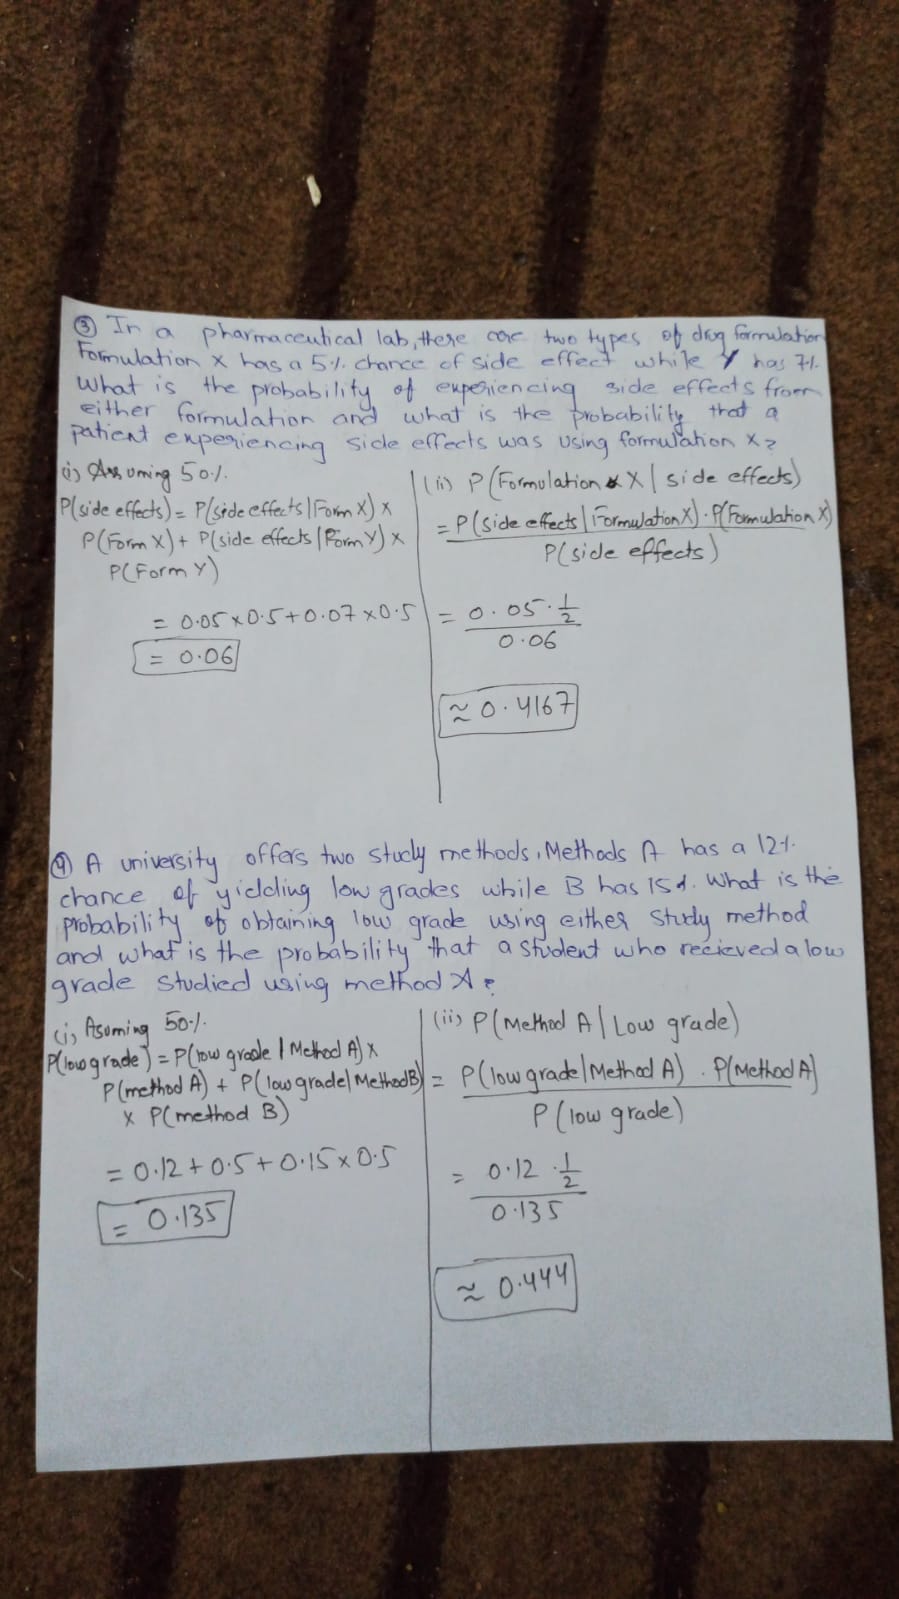 ③ In a pharmaceutical lab, there are two types of drug formulation
Formulation X has a 5%. chance of side effect while Y has 7%.
What is the probability of experiencing side effects from
either formulation and what is the probability that a
patient experiencing side effects was using formulation X?
(i) Assuming 50%.
P(side effects) = P(side effects | Form X) ×
P(Form X) + P(side effects | Form Y) ×
P(Form Y)
= 0.05 × 0.5 + 0.07 × 0.5
= 0.06
(ii) P(Formulation X | side effects)
= P(side effects | Formulation X) · P(Formulation X)
P(side effects)
= 0.05 · 1/2
0.06
≈ 0.4167
④ A university offers two study methods, Methods A has a 12%.
chance of yidding low grades while B has 15%. What is the
probability of obtaining low grade using either study method
and what is the probability that a student who recieved a low
grade studied using method A?
(i) Asuming 50%.
P(low grade) = P(low grade | Method A) ×
P(method A) + P(low grade | Method B)
× P(method B)
= 0.12 + 0.5 + 0.15 × 0.5
= 0.135
(ii) P(Method A | Low grade)
= P(low grade | Method A) · P(Method A)
P(low grade)
= 0.12 · 1/2
0.135
≈ 0.444